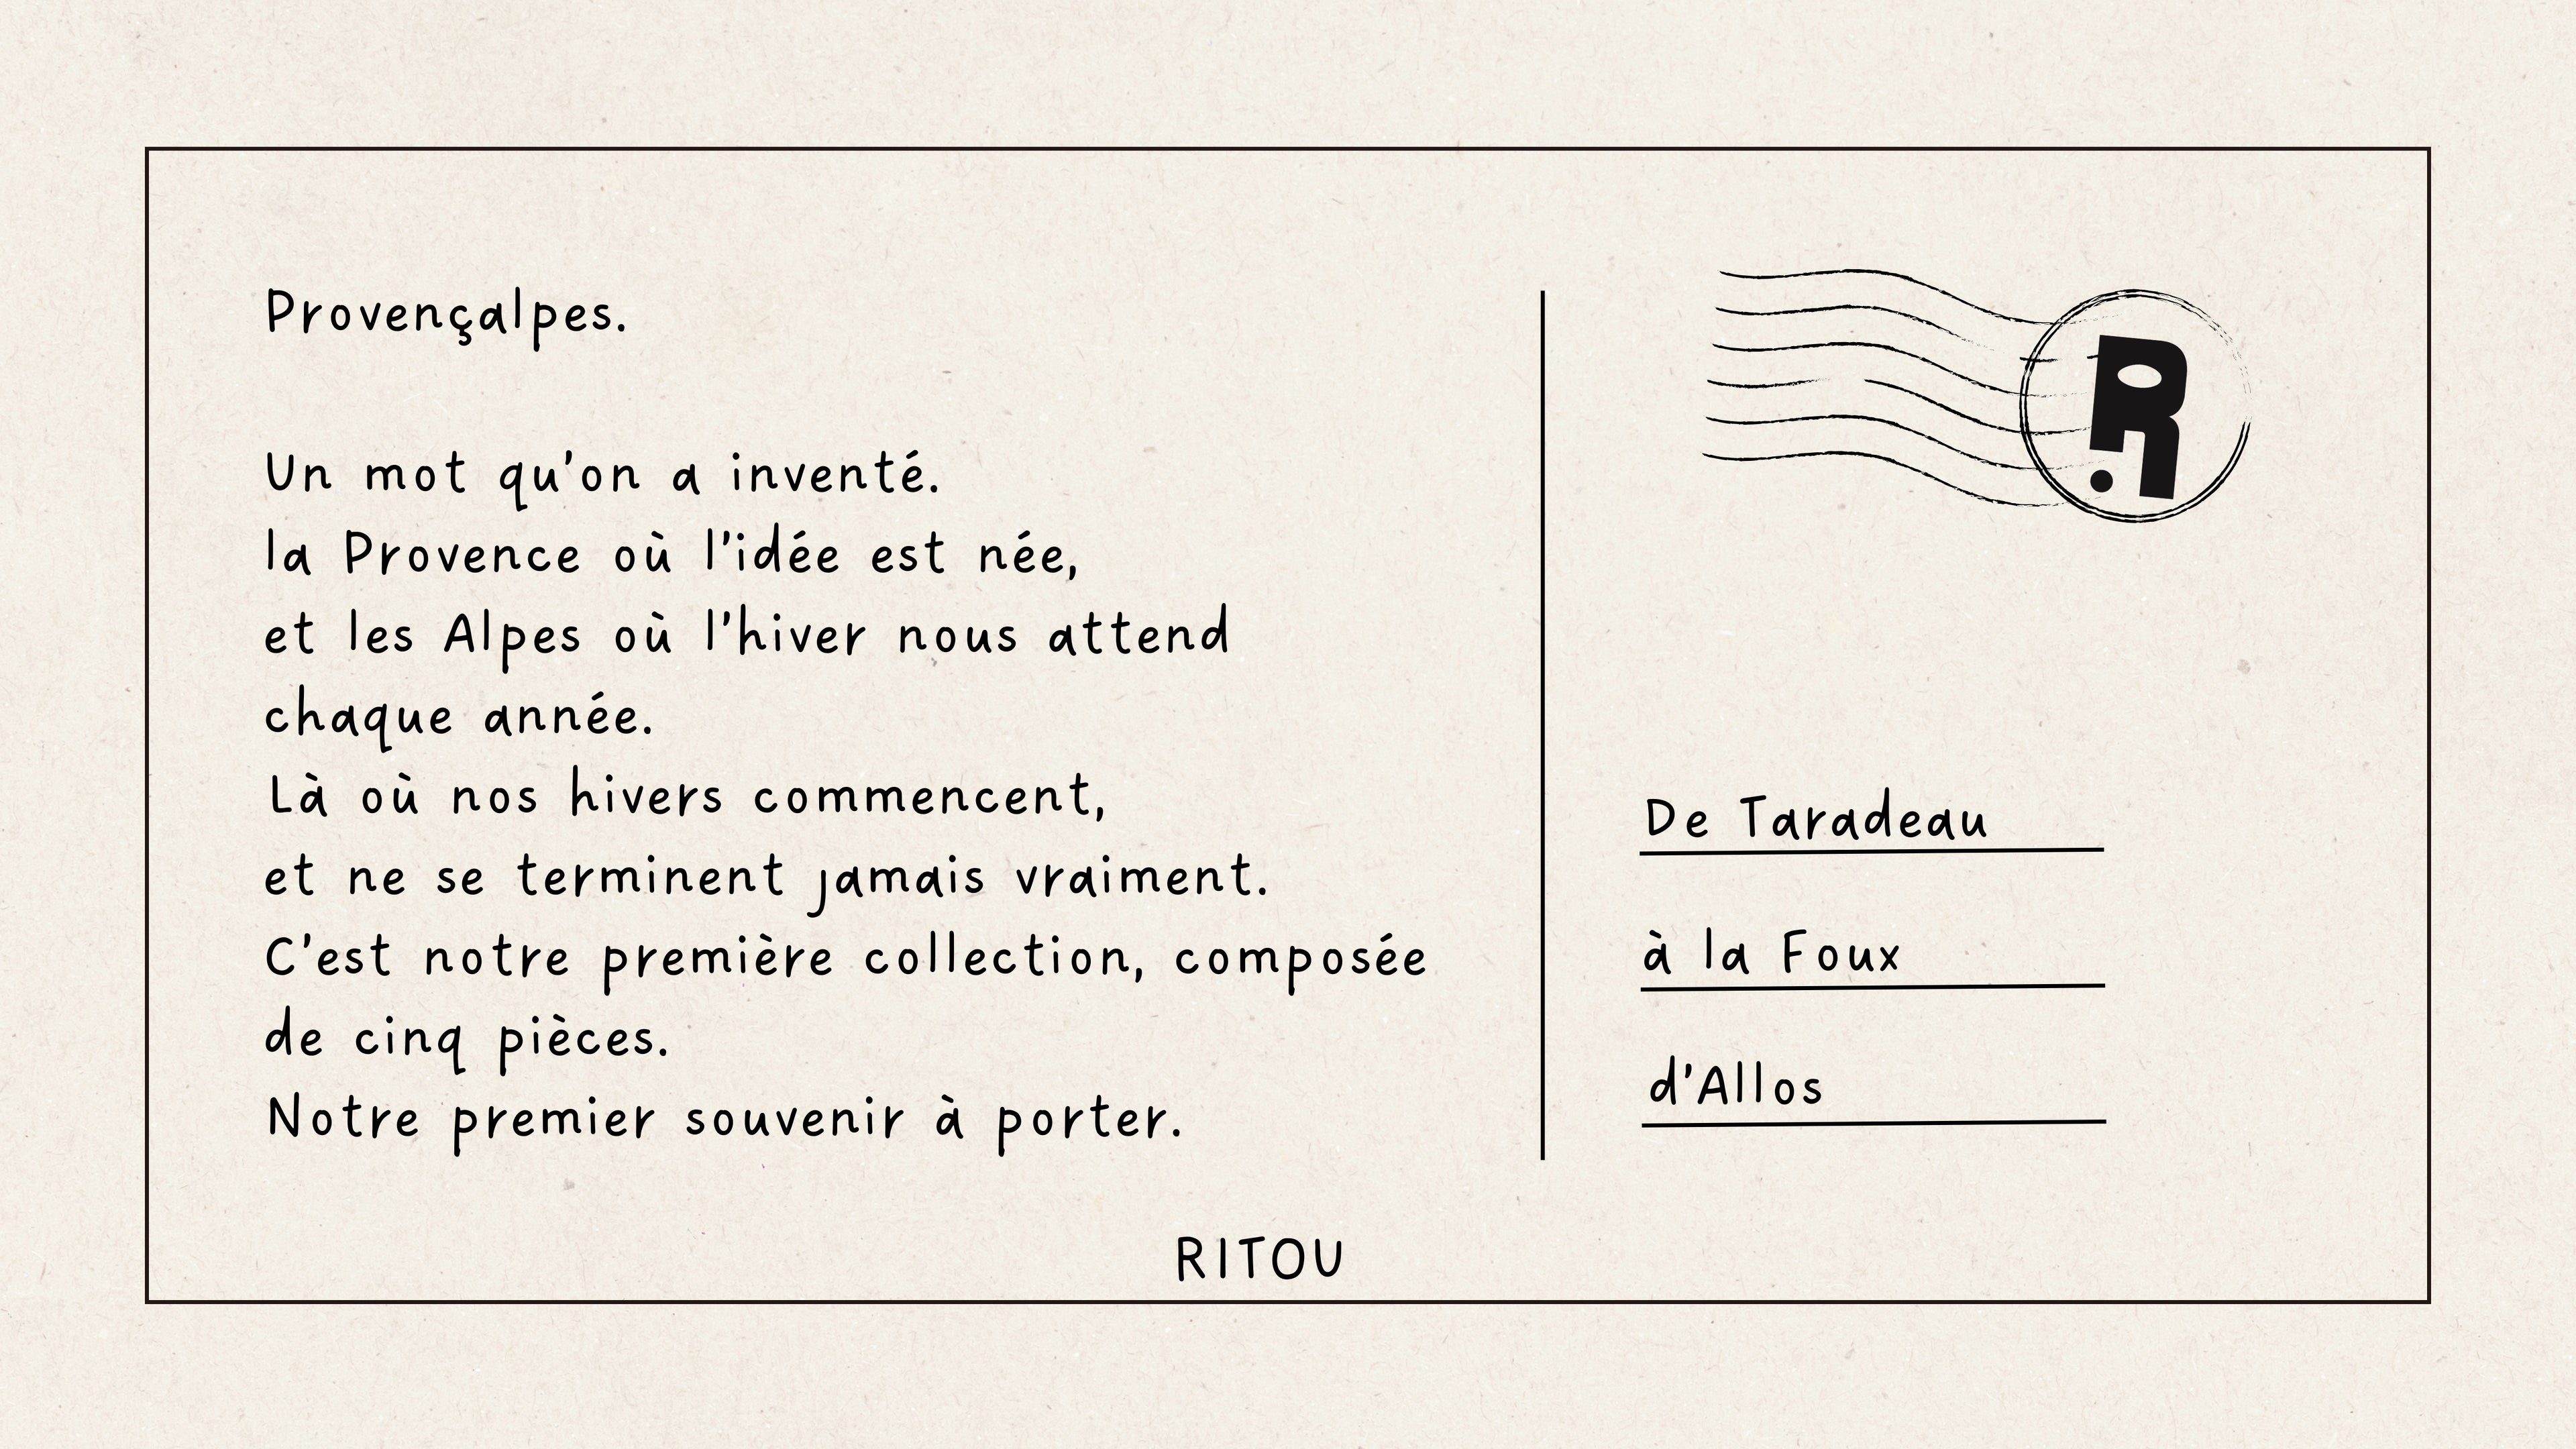 Provençalpes.
Un mot qu'on a inventé.
la Provence où l'idée est née,
et les Alpes où l'hiver nous attend
chaque année.
Là où nos hivers commencent,
et ne se terminent jamais vraiment.
C'est notre première collection, composée
de cinq pièces.
Notre premier souvenir à porter.
R
De Taradeau
à la Foux
d'Allos
RITOU